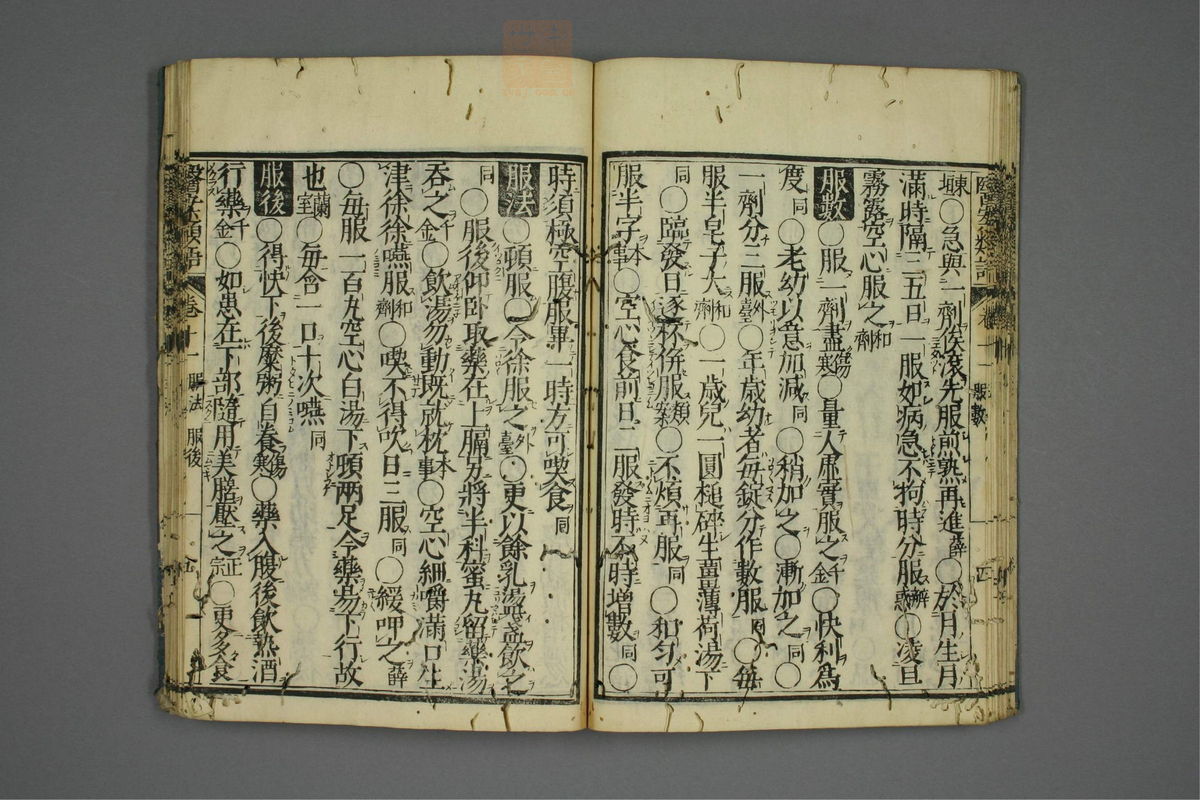 東垣○急與一劑俟滾先服煎熟再進薛○於月生月
滿時隔三五日一服如病急不拘時分服解惑○凌旦
霧露空心服之和劑
服數○服一劑盡傷寒○量人虛實服之千金○快利爲
度同○老幼以意加減同○稍加之○漸加之同○
一劑分三服外臺○年歲幼者毎錠分作數服同○毎
服半皂子大和劑○一歲兒一圓槌碎生薑薄荷湯下
同○臨發日逐杯併服類聚○不煩再服同○和勻可
服半字本事○空心食前日二服發時不時增數同○
時須極空腹服畢一時方可喫食同
服法○頓服○令徐服之外臺○更以餘乳盪盞飲之
同○服後仰臥取藥在上膈別將半料蜜丸留藥湯
吞之千金○飲湯勿動既就枕本事○空心細嚼滿口生
津徐徐嚥服和劑○喫不得吹日三服同○緩呷之薛
○毎服一百丸空心白湯下頓兩足令藥易下行故
也蘭室○毎含一口十次嚥同
服後○得快下後糜粥自養傷寒○藥入腹後飲熱酒
行藥千金○如患在下部隨用美膳壓之正宗○更多食
醫學類語 卷十一 服法 服後
服數 四